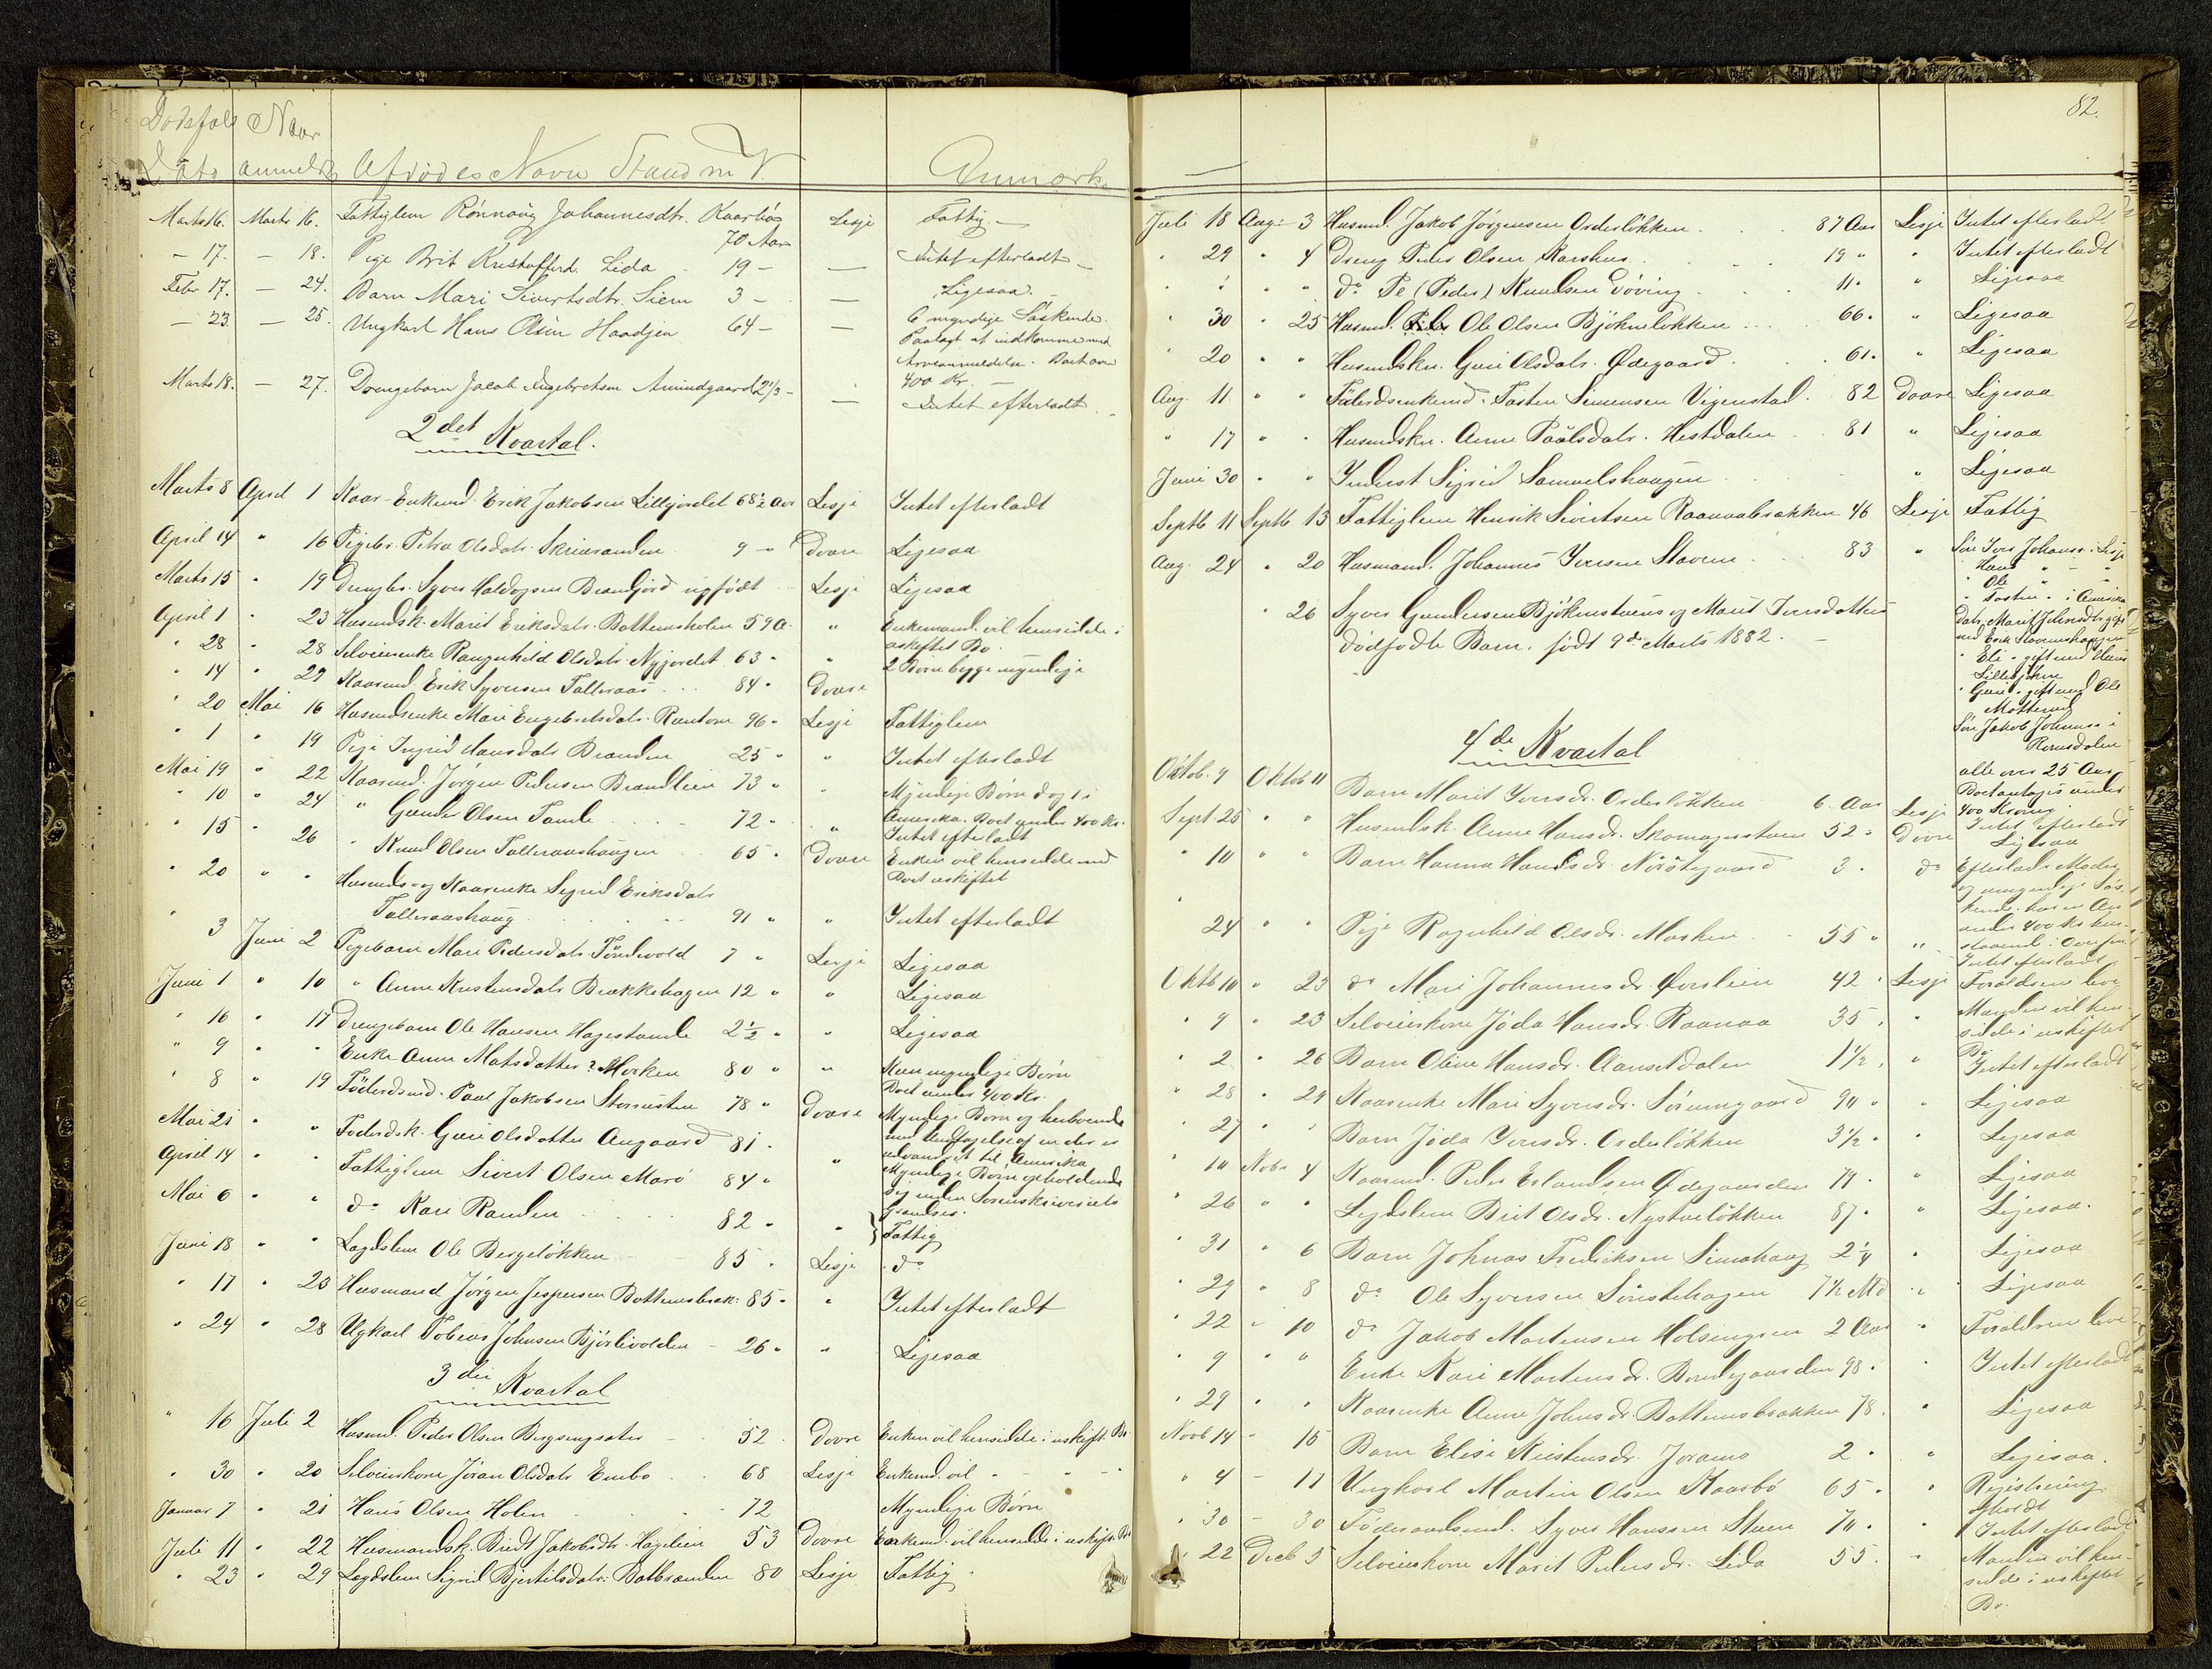 Dødsfals Naar
Dato anmeldt Afdødes Navn Stand m. V. Anmærk.
Marts 16. Marts 16. Fattiglem Rønnaug Johannesdtr. Kaarbøe 70 Aar Lesje Fattig
- 17. - 18. Pige Brit Kristoffersd. Lida 19 - — Intet efterladt
Febr 17. - 24. Barn Mari Sivertsdtr. Siem 3 - — Ligesaa.
- 23. - 25. Ungkarl Hans Olsen Haadjen 64 - — 6 myndige Søskende.
Paalagt at indkomme med
Arveanmeldelse. Boet over
400 Kr. —
Marts 18. - 27. Drengebarn Jacob Engebretsen Amundgaard 2 1/3 - — Intet efterladt
2det Kvartal.
Marts 8 April 1 Kaar-Enkemd. Erik Jakobsen Lillejordet 68½ Aar Lesje Intet efterladt
April 14 " 16 Pigebr. Petra Olsdatr. Skriuranden 9 " Dovre Ligesaa
Marts 15 " 19 Drengbr. Syver Haldorsen Brandjord nyfødt Lesje Ligesaa
April 1 " 23 Husmdsk. Marit Eriksdatr. Bottemsholen 59 A. " Enkemand. vil hensidde i
uskiftet Bo.
" 28 " 28 Selveierenke Rangnhild Olsdatr. Nyjordet 63 " " 2 Børn begge myndige
" 14 " 29 Kaarmd. Erik Syversen Talleraas 84 " Dovre
" 20 Mai 16 Husmdsenke Mari Engebretsdatr. Runtom 96 " Lesje Fattiglem
" 1 " 19 Pige Ingrid Hansdatr Branden 25 " " Intet efterladt
Mai 19 " 22 Kaarmd. Jørgen Pedersen Brandlien 73 " " Myndige Børn dog 1 i
Amerika. Boet under 400 Kr.
" 10 " 24 " Gunder Olsen Tande 72 " " Intet efterladt
" 15 " 26 " Knud Olsen Talleraashaugen 65 " Dovre Enken vil hensidde med
Boet uskiftet
" 20 " " Husmds- og Kaarenke Sigrid Eriksdatr
Talleraashaug 91 " " Intet efterladt
" 3 Juni 2 Pigebarn Mari Pedersdatr. Tøndevold 7 " Lesje Ligesaa
Juni 1 " 10 " Anne Kristensdatr Brækkehagen 12 " " Ligesaa
" 16 " 17 Drengebarn Ole Hansen Hagestande 2½ " " Ligesaa
" 9 " " Enke Anne Matsdatter? Morken 80 " " Kun myndige Børn
Boet under 400 Kr.
" 8 " 19 Føderdsmd. Paal Jakobsen Storrusten 78 " Dovre Myndige Børn og herboende
med Undtagelse af en der er
udvandret til Amerika
Mai 21 " " Føderdsk. Guri Olsdatter Augaard 81 " " Myndige Børn opholdende
sig inden Sorenskriveriets
Grændser.
April 14 " " Fattiglem Sivert Olsen Morø 84 "
Mai 6 " " do Kari Randen 82 " " } Fattig
Juni 18 " " Lægdslem Ole Bergeløkken 85 " Lesje do
" 17 " 23 Husmand Jørgen Jespersen Bottemsbræk. 85 " " Intet efterladt
" 24 " 28 Ugkarl Tobias Johnsen Bjørlivolden 26 " " Ligesaa
3die Kvartal
" 16 Juli 2 Husmd. Peder Olsen Bergsengsæter 52 Dovre Enken vil hensidde i uskift. Bo
" 30 " 20 Selveierkone Jøran Olsdatr Enebo 68 Lesje Enkemd. vil " - " - "
Januar 7 " 21 Hans Olsen Holen 72 Myndige Børn
Juli 11 " 22 Husmandsk. Birit Jakobsdtr. Hagelien 53 Dovre Enkemd. vil hensidde i uskift. Bo
" 23 " 29 Lægdslem Sigrid Bjertilsdatr. Botbranden 80 Lesje Fattig
82.
Juli 18 Aug. 3 Husmd. Jakob Jørgensen Orderløkken 87 Aar Lesje Intet efterladt
" 29 " 4 Dreng Peder Olsen Karshus 19 " " Intet efterladt
" " " " do Pe (Peder) Knudsen Døving 11 " " Ligesaa
" 30 " 25 Husmd. Ole Olsen Bjøkneløkken 66 " " Ligesaa
" 20 " " Husmdskn. Guri Olsdatr. Ødegaard 61 " " Ligesaa
Aug. 11 " " Føderdsenkemd. Tosten Simensen Vigenstad 82 Dovre Ligesaa
" 17 " " Husmdskn. Anne Paalsdatr. Hestdalen 81 " Ligesaa
Juni 30 " " Inderst Sigrid Samuelshaugen " Ligesaa
Septb 11 Septb 13 Fattiglem Henrik Sivertsen Raanaabrækken 46 Lesje Fattig
Aug. 24 " 20 Husmand. Johannes Iversen Stavem 83 " Søn Iver Johanss. i Lesje
" Hans " - "
" Ole " "
" Tosten " i Amerika
" 26 Syver Gundersen Bjøknestuens og Marit Iversdatters
dødfødte Barn, født 9de Marts 1882. —
Datr. Marit Johansdtr gift
med Erik Stavemshaugen
" Eli " gift med Hans
Lillebjøkne
" Guri " gift med Ole
Mølmend
Søn Jakob Johanss i
Romsdalen
alle over 25 Aar
Boet antages under
400 Kroner
4de Kvartal
Oktob. 9 Oktob 11 Barn Marit Iversdr. Orderløkken 6 Aar Lesje Intet efterladt
Sept. 25 " " Husmdsk. Anne Hansdr. Skomagerstuen 52 " Dovre Ligesaa
" 10 " " Barn Hanna Hansdr. Nørstegaard 3 " do Efterlader Moder
og umyndige Søs-
kende. har en Arv
under 400 Kr hen-
staaende i Overfor.
" 24 " " Pige Ragnhild Olsdr. Morken 55 " " Intet efterladt
Oktb 10 " 23 do Mari Johannesdr. Øverlien 42 " Lesje Forældrene leve
" 9 " 23 Selveierkone Jøda Hansdr. Raanaa 35 " " Manden vil hen-
sidde i uskiftet
Bo
" 2 " 26 Barn Oline Hansdr. Aansetdalen 1½ " " Intet efterladt
" 28 " 29 Kaarenke Mari Syversdr. Sørumgaard 90 " " Ligesaa
" 27 " " Barn Jøda Iversdr. Orderløkken 3½ " " Ligesaa
" 10 Nobr 4 Kaarmd. Peder Erlandsen Ødegaarden 79 " " Ligesaa
" 26 " " Lægdslem Brit Olsdr. Nystueløkken 87 " " Ligesaa.
" 31 " 6 Barn Johnas Fredriksen Simahaug 2¼ " Ligesaa
" 29 " 8 do Ole Syversen Sørstehagen 7½ Md " Ligesaa
" 22 " 10 do Jakob Mortensen Holsingsen 2 Aar " Forældrene leve
" 9 " " Enke Kari Mortensdr. Bondegaarden 98 " " Intet efterladt
" 29 " " Kaarenke Anne Johnsdr. Bottemsbrækken 78 " " Ligesaa
Novb 14 " 15 Barn Elise Kristensdr. Joramo 2 " " Ligesaa.
" 4 - 17 Ungkarl Martin Olsen Kaarbø 65 " " Registrering
afholdt
" 30 - 30 Føderaadsmd. Syver Hanssen Stuen 70 " " Intet efterladt
" 22 Decb 5 Selveierkone Marit Pedersdr. Lida 55 " " Manden vil hen-
sidde i uskiftet
Bo.